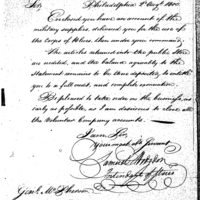 Sir, Philadelphia 2d Augt 1800.
Enclosed you have an account of the
military supplies, delivered you, for the use of
the Corps of Horse, then under your command;
The articles returned into the public Store
are credited, and the balance agreeably to the
Statement remains to be thus deposited, to entitle
you to a full, and complete
Be pleased to take order on the business, as
early as possible, as I am desirous to close all
the Volunteer Company accounts.
I am Sir,
your most ob. Servant
Samuel Hodgdon
Genl. Mc Pherson